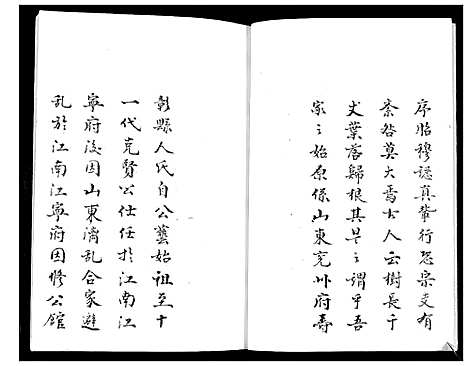 序昭穆認真輩行恐宗支有
紊咎莫大焉古人云樹長千
丈葉落歸根其是之謂乎吾
家之始原係山東兗州府壽
彰縣人氏自公藝始祖至十
一代克賢公仕任於江南江
寧府後因山東濟亂合家避
乱於江南江寧府因修公舘